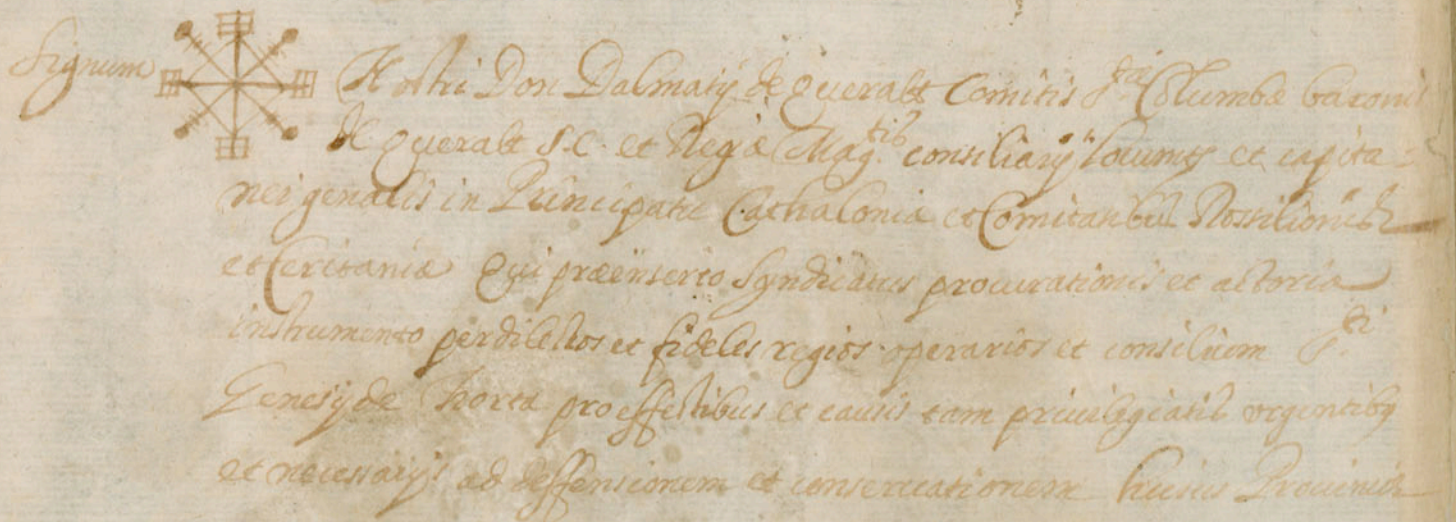 Signum Nostri Don Dalmatij de Queralt Comitis Stæ Columbæ baronis
de Queralt S.C. et Regiæ Magtis consiliarij locumts et capita-
nei genalis in Principatu Cathaloniæ et Comitatibus Rossilionis
et Ceritaniæ Qui præinserto Syndicatus procurationis et actoria
instrumento per dilectos et fideles regios operarios et consilium Sti
Genesij de Horta pro effectibus et causis tam priuilegiatis vrgentibus
et necessarijs ad deffensionem et conseruationem huius Prouinciæ